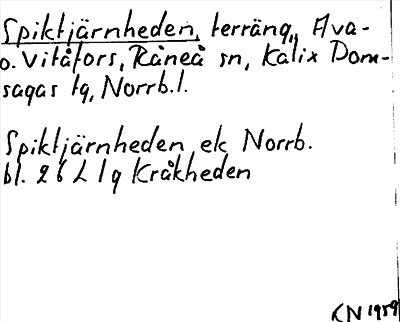 Spiktjärnheden, terräng, Ava-
o. Vitåfors, Råneå sn, Kalix Dom-
sagas tg, Norrb.l.
Spiktjärnheden ek Norrb.
bl. 26 L 1g Kråkheden
KN 1959